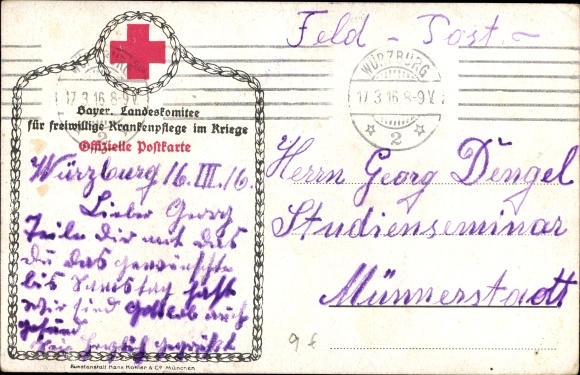 Feld-Post.
WÜRZBURG
17.3.16.8-9V.
2
Bayer. Landeskomitee
für freiwillige Krankenpflege im Kriege
Offizielle Postkarte
Würzburg 16.III.16.
Lieber Georg
Teile Dir mit das
du das gewünschte
bis Samstag hast
wir sind Gottlob auch
gesund.
herzlich gegrüßt
Herrn Georg Dengel
Studienseminar
Münnerstadt
9 f
Kunstanstalt Hans Kohler & Co. München